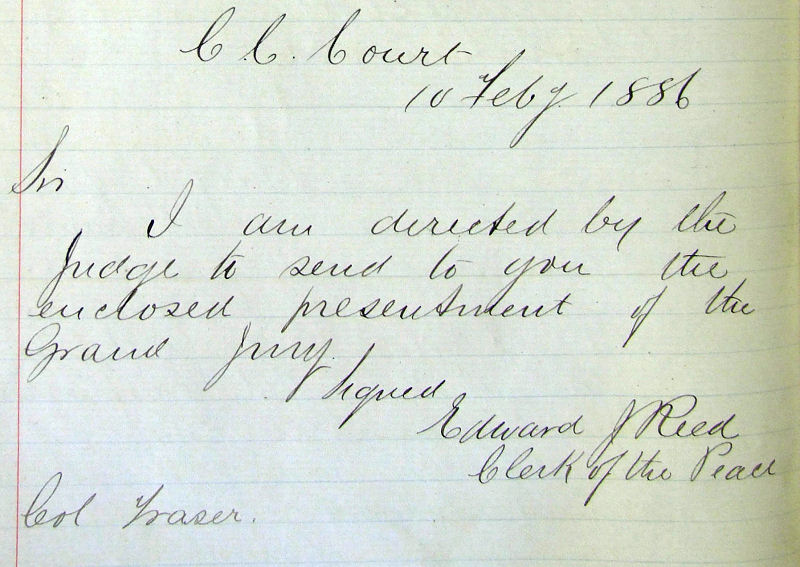 C. C. Court
10 Feby. 1886
Sir
I am directed by the
Judge to send to you the
enclosed presentment of the
Grand Jury.
Signed
Edward J Reed
Clerk of the Peace
Col Fraser.